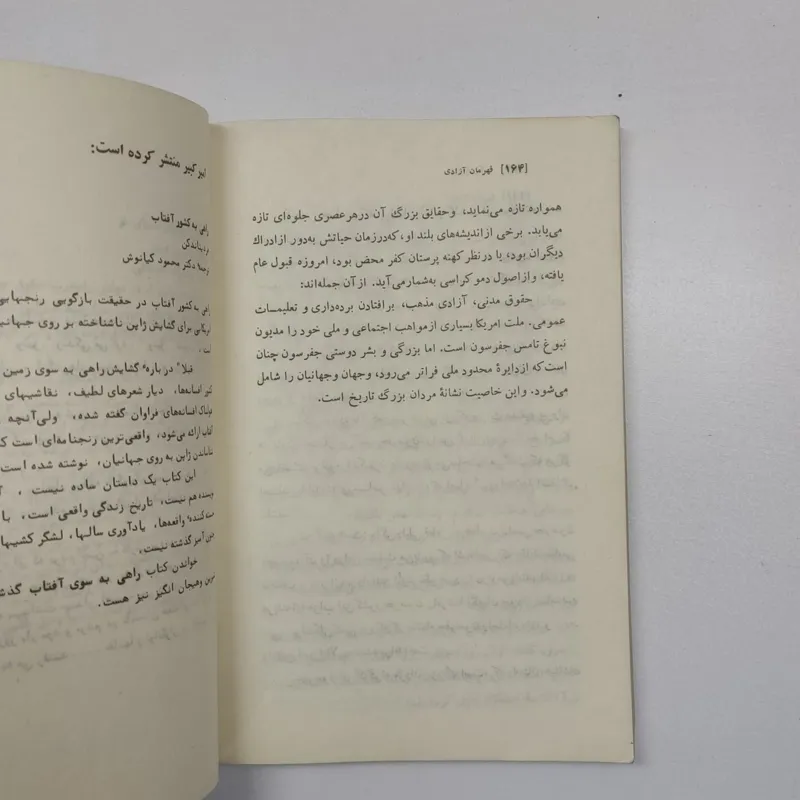 [۱۶۴] قهرمان آزادی
همواره تازه می‌نماید، وحقایق بزرگ آن درهرعصری جلوه‌ای تازه
می‌یابد. برخی ازاندیشه‌های بلند او، که‌درزمان حیاتش به‌دور ازادراك
دیگران بود، یا درنظر کهنه پرستان کفر محض بود، امروزه قبول عام
یافته، وازاصول دمو کراسی به‌شمارمی‌آید. از آن جمله‌اند:
حقوق مدنی، آزادی مذهب، برافتادن برده‌داری و تعلیمات
عمومی. ملت امریکا بسیاری ازمواهب اجتماعی و ملی خود را مدیون
نبوغ تامس جفرسون است. اما بزرگی و بشر دوستی جفرسون چنان
است‌که ازدایرهٔ محدود ملی فراتر می‌رود، وجهان وجهانیان را شامل
می‌شود. واین خاصیت نشانهٔ مردان بزرگ تاریخ است.
امیر کبیر منتشر کرده است:
راهی به کشور آفتاب
ترجمهٔ دکتر محمود کیانوش
راهی به کشور آفتاب در حقیقت بازگویی رنجهایی
برای گشایش ژاپن ناشناخته بر روی جهانیان
است.
قبلا" درباره" گشایش راهی به سوی زمین
افسانه‌ها، دیار شعرهای لطیف، نقاشیهای
افسانه‌های فراوان گفته شده، ولی‌آنچه
ارائه می‌شود، واقعی‌ترین رنجنامه‌ای است که
ژاپن به روی جهانیان، نوشته شده است.
این کتاب یک داستان ساده نیست،
هم نیست، تاریخ زندگی واقعی است، با
واقعه‌ها، یادآوری سالها، لشگر کشیها
گذشته نیست،
خواندن کتاب راهی به سوی آفتاب
وهیجان انگیز نیز هست.